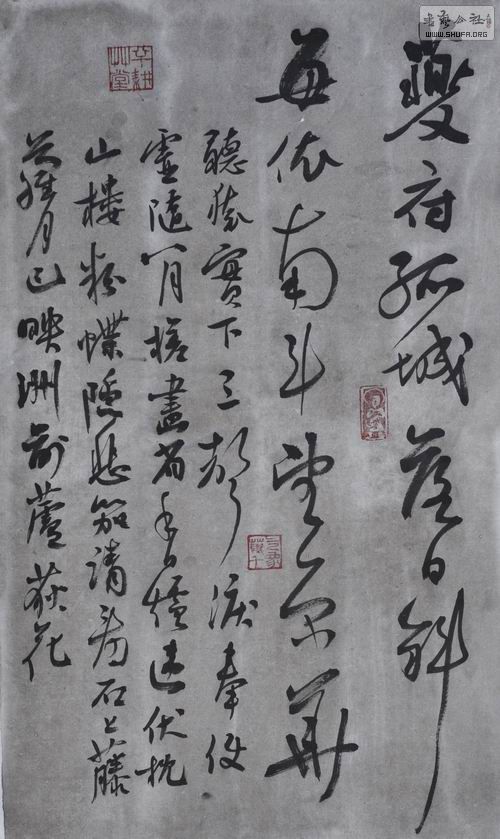 書藝公社
WWW.SHUFA.ORG
夔府孤城落日斜
每依南斗望京華
聽猿實下三聲淚奉使
虛隨八月槎畫省香爐違伏枕
山樓粉蝶隱悲笳請看石上藤
蘿月已映洲前蘆荻花
半耕艸堂